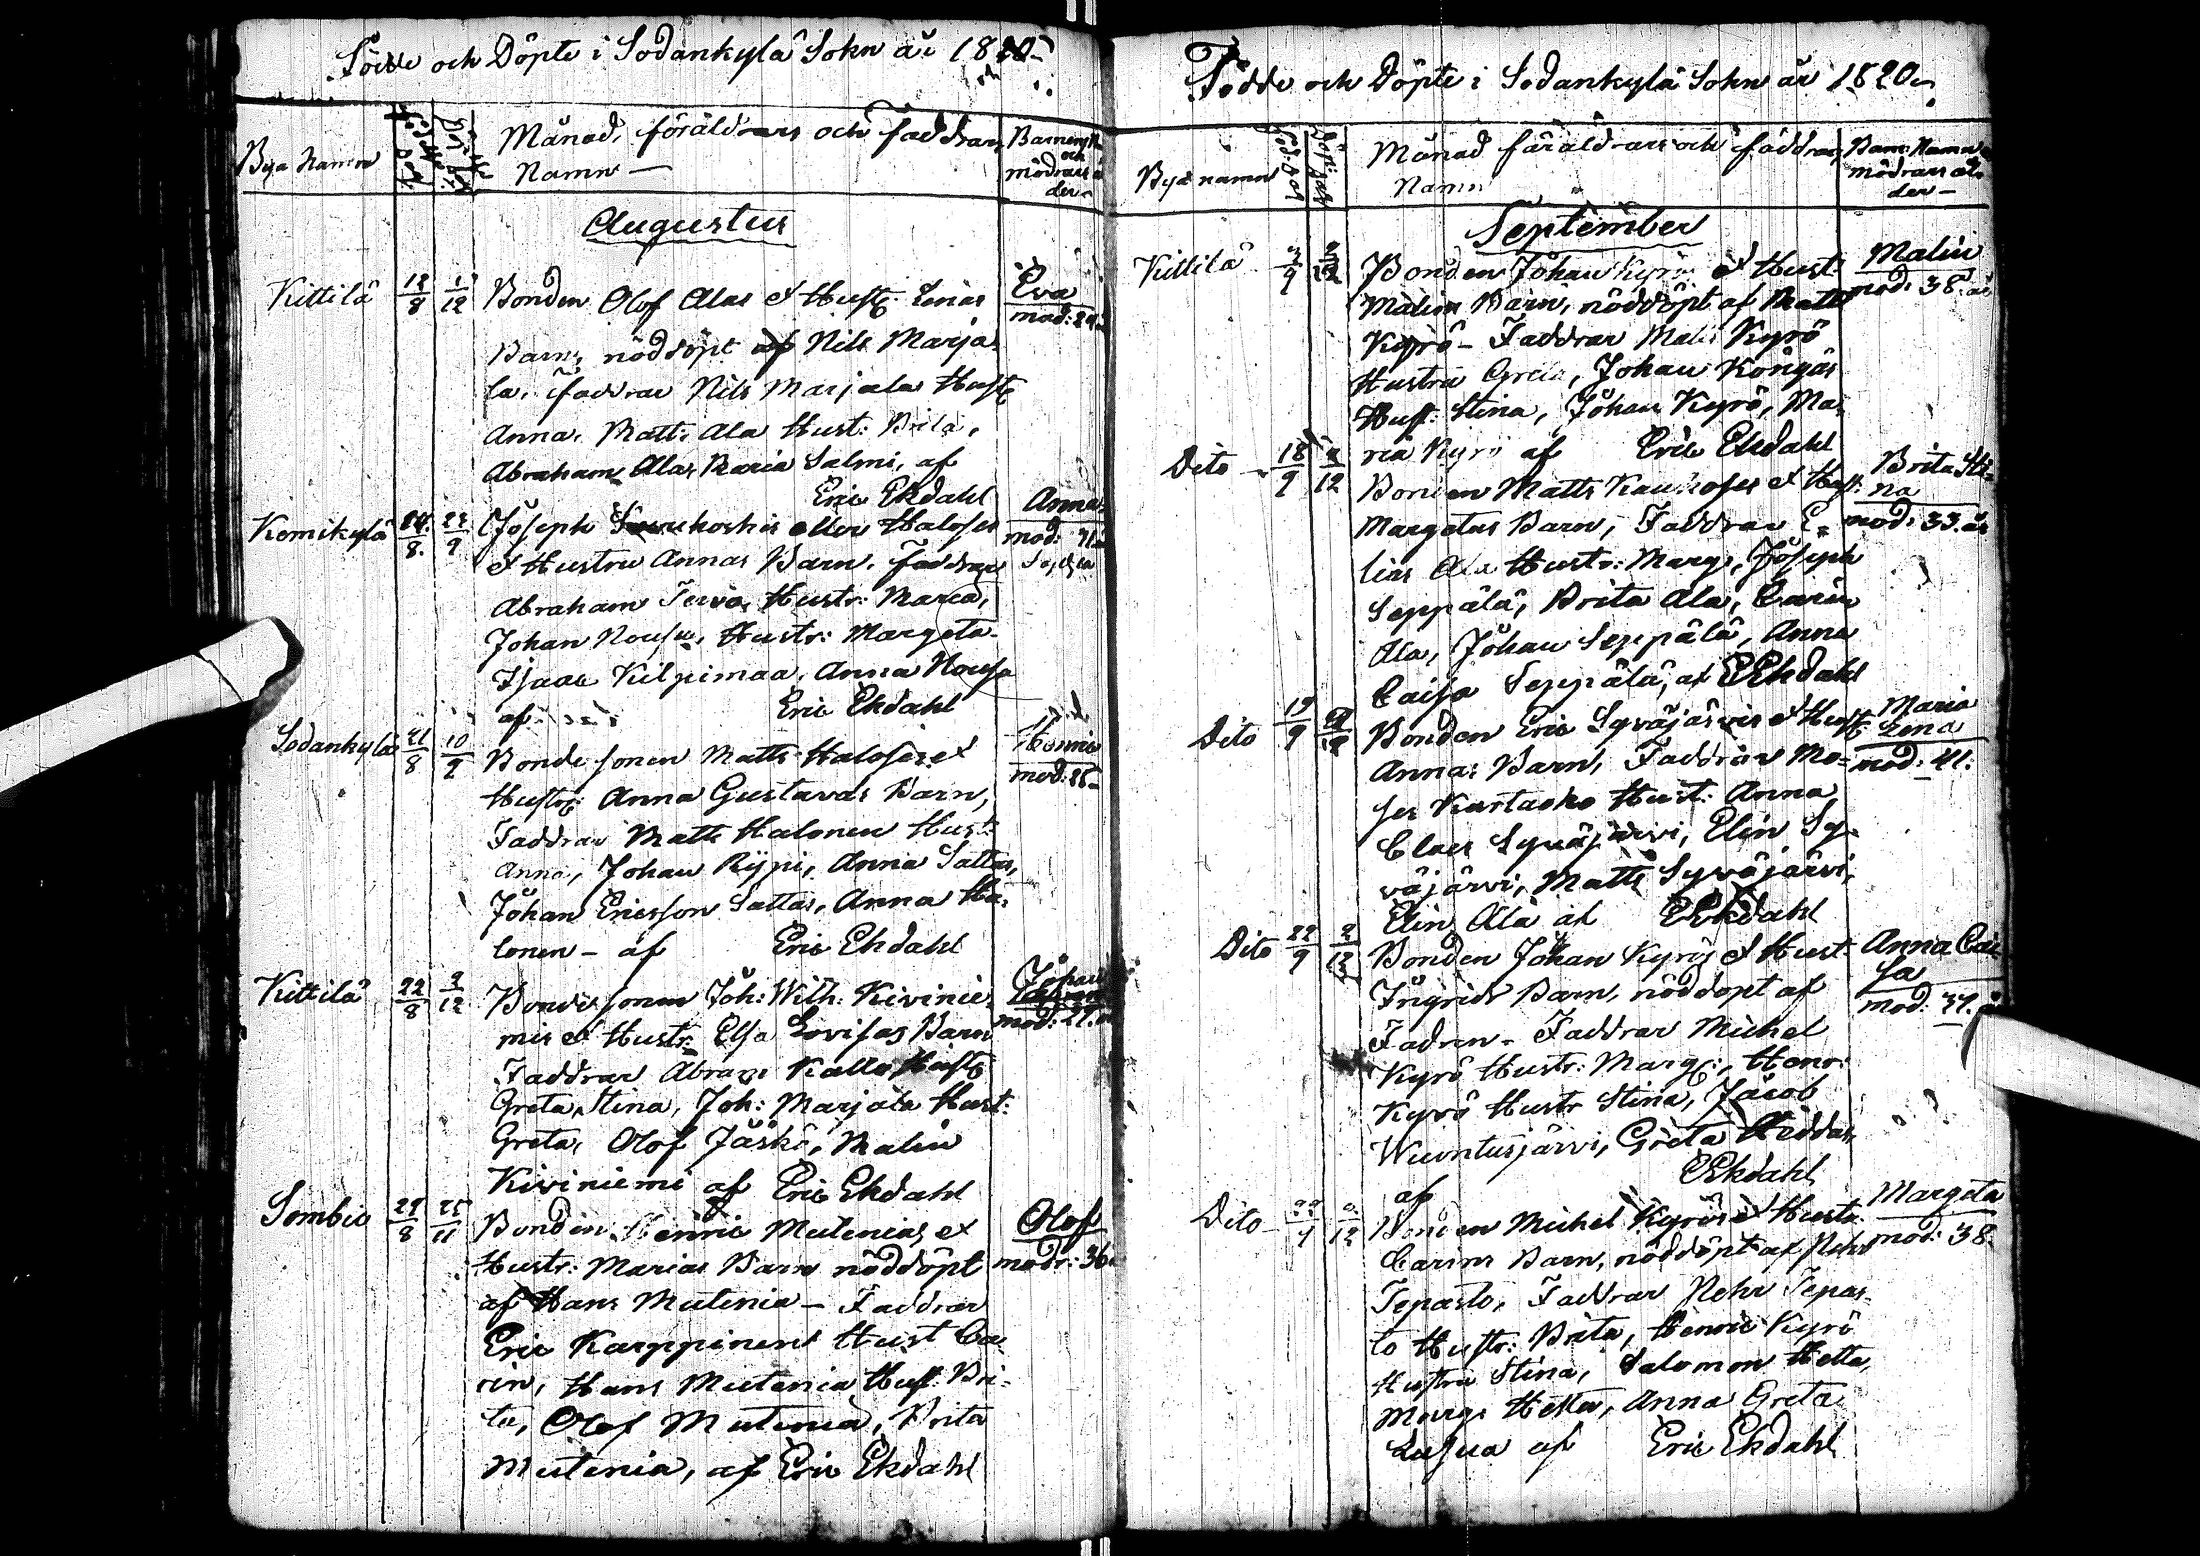 Födde och Döpte i Sodankylä Sokn år 1820
Bya Namn
Månad, föräldrars och faddrars Namn
Barnens N och mödrars å der
Augustus
Kittilä 18/8 1/12 Bonden Olof Alas & Hust: Lenas
Eva
mod: 29
Barn, nöddöpt af Nils Marja
la, faddrar Nils Marjala Hust:
Anna, Matts Ala Hust: Brita,
Abraham Ala, Maria Salmi, af
Eric Ekdahl
Kemikylä 24/8 23/9 Joseph eller Haloses
Anna
mod: 41
& Hustru Annas Barn, faddrar
Abraham Tervo, Hustr: Maria,
Johan Nousu, Hustr: Margeta
Isaac Kilpimaa, Anna Nousu
af Eric Ekdahl
Sodankylä 21/8 10/9 Bonde sonen Matts Haloses &
Henric
mod: 25
Hustr: Anna Gustavas Barn,
Faddrar Matts Halonen Hust:
Anna, Johan Rypi, Anna Sattas,
Johan Ericsson Sattas, Anna Ha
lonen - af Eric Ekdahl
Kittilä 22/8 2/12 Bonde sonen Joh: Wilh: Kivinie
Johan
mod: 27
mis & Hustr: Elsa Lovisas Barn
Faddrar Abram Kallo Hustr
Greta Stina, Joh: Marjala Hust:
Greta, Olof Jäskö, Malin
Kiviniemi af Eric Ekdahl
Sombio 29/8 25/11 Bonden Henric Mutenias &
Olof
modr: 36
Hustr: Marias Barn nöddöpt
af Hans Mutenia - Faddrar
Eric Karppinen Hust Ca
rin, Hans Mutenia Hust: Bri
ta, Olof Mutenia, Brita
Mutenia, af Eric Ekdahl
Födde och Döpte i Sodankylä Sokn år 1820
Bya namn
Föd: dag
Döp: dag
Månad föräldrars och faddrars Namn
Barn: Namn mödrars ål der -
September
Kittilä 3/9 2/12 Bonden Johan Kyrös & Hust:
Malin
mod: 38 år
Malins Barn, nöddöpt af Matts
Kyrö - Faddrar Matts Kyrö
Hustru Greta, Johan Köngäs
Hust: Stina, Johan Kyrö, Ma
ria Kyrö af Eric Ekdahl
Dito 18/9 3/12 Bonden Matts Kaukoses & Hust:
Brita Sti
na
mod: 33 år
Margetas Barn, Faddrar E
lias Ala Hustr: Marg:, Joseph
Seppälä, Brita Ala, Carin
Ala, Johan Seppälä, Anna
Caisa Seppälä, af E Ekdahl
Dito 19/9 Bonden Eric Syväjärvis & Hust
Maria
Lena
mod: 41.
Annas Barn, Faddrar Mo=
ses Kurtacko Hust: Anna
Claes Syväjärvi, Elin Sy=
väjärvi, Matts Syväjärvi,
Elin Ala af E Ekdahl
Dito 22/9 2/12 Bonden Johan Kyrös & Hust
Anna Cai
sa
mod: 37. år
Ingrids Barn, nöddöpt af
Fadren - Faddrar Michel
Kyrö Hustr: Marg:, Henr:
Kyrö Hustr Stina, Jacob
Wuontusjärvi, Greta Hidda
af E Ekdahl
Dito Bonden Michel Kyrös & Hustr
Margeta
mod: 38
Carins Barn, nöddöpt af Pehr
Tepasto, Faddrar Pehr Tepas
to Hustr: Brita, Henric Kyrö
Hustru Stina, Salomon Hetta,
Marg: Hetta, Anna Greta
Lusua af Eric Ekdahl